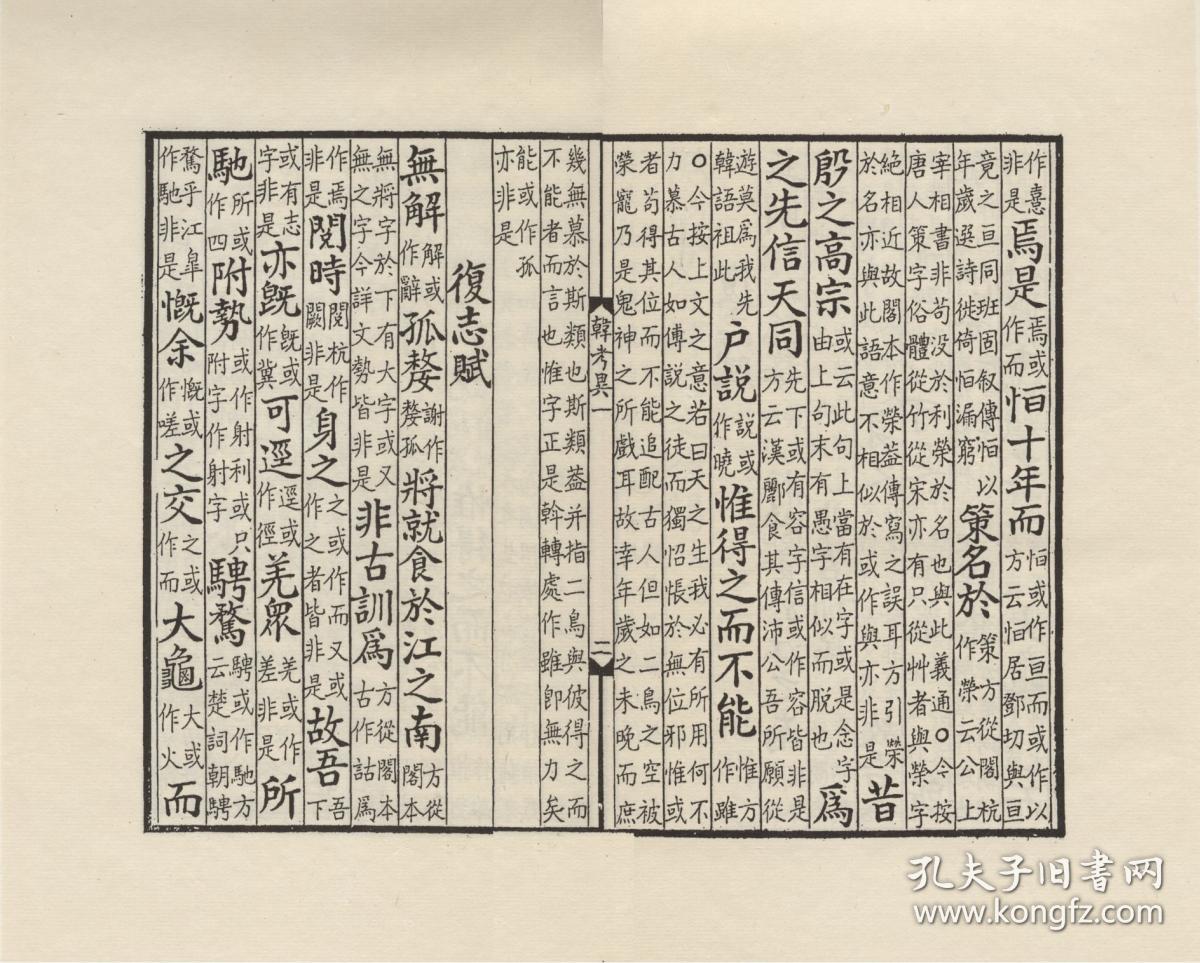 作憙非是焉是焉或作而恒十年而恒或作亘而或作以方云恒居鄧切與亘
竟之亘同班固叙傳恒以年歲選詩徙倚恒漏窮策名於策方從閣杭作榮云公上
宰相書非苟没於利榮於名也與此義通〇今按唐人策字俗體從竹從宋亦有只從艸者與榮字
絶相近故閣本作榮葢傳寫之誤耳方引榮於名亦與此語意不相似於或作與亦非是昔
殷之高宗或云此句上當有在字或是念字由上句末有愚字相似而脱也爲
之先信天同先下或有容字信或作容皆非是方云漢酈食其傳沛公吾所願從
遊莫爲我先韓語祖此户説説或作曉惟得之而不能惟方作雖
〇今按上文之意若曰天之生我必有所用何不力慕古人如傅説之徒而獨怊悵於無位邪惟或
者苟得其位而不能追配古人但如二鳥之空被榮寵乃是鬼神之所戲耳故幸年歲之未晚而庶
韓考異一 二
幾無慕於斯類也斯類葢并指二鳥與彼得之而不能者而言也惟字正是斡轉處作雖即無力矣
能或作孤亦非是
復志賦
無解解或作辭孤嫠謝作嫠孤將就食於江之南方從閣本
無將字於下有大字或又無之字今詳文勢皆非是非古訓爲方從閣本古作詁爲
作焉非是閱時閱杭作闕非是身之之或作而又或作之者皆非是故吾吾下
或有志字非是亦旣旣或作冀可逕逕或作徑羌衆羌或作差非是所
馳所或作四附勢或作射利或只附字作射字騁騖騁或作馳方云楚詞朝騁
騖乎江皐作馳非是慨余慨或作嗟之交之或作而大龜大或作火而
孔夫子旧书网
www.kongfz.com